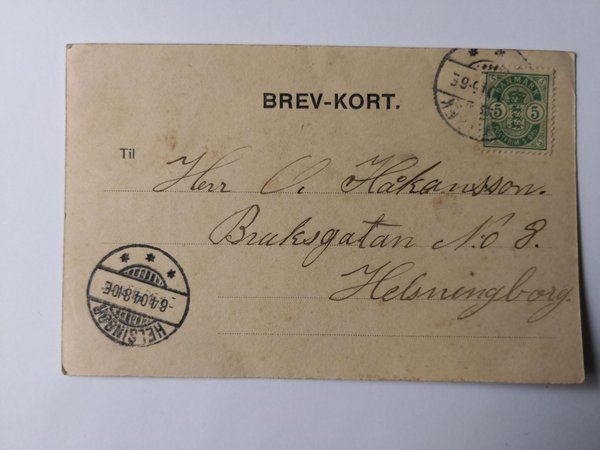 BREV-KORT.
DANMARK
5 5
Til
Herr O. Håkansson.
Bruksgatan No 8.
Helsningborg.
-6.4.04.8-10E
HELSINGØR